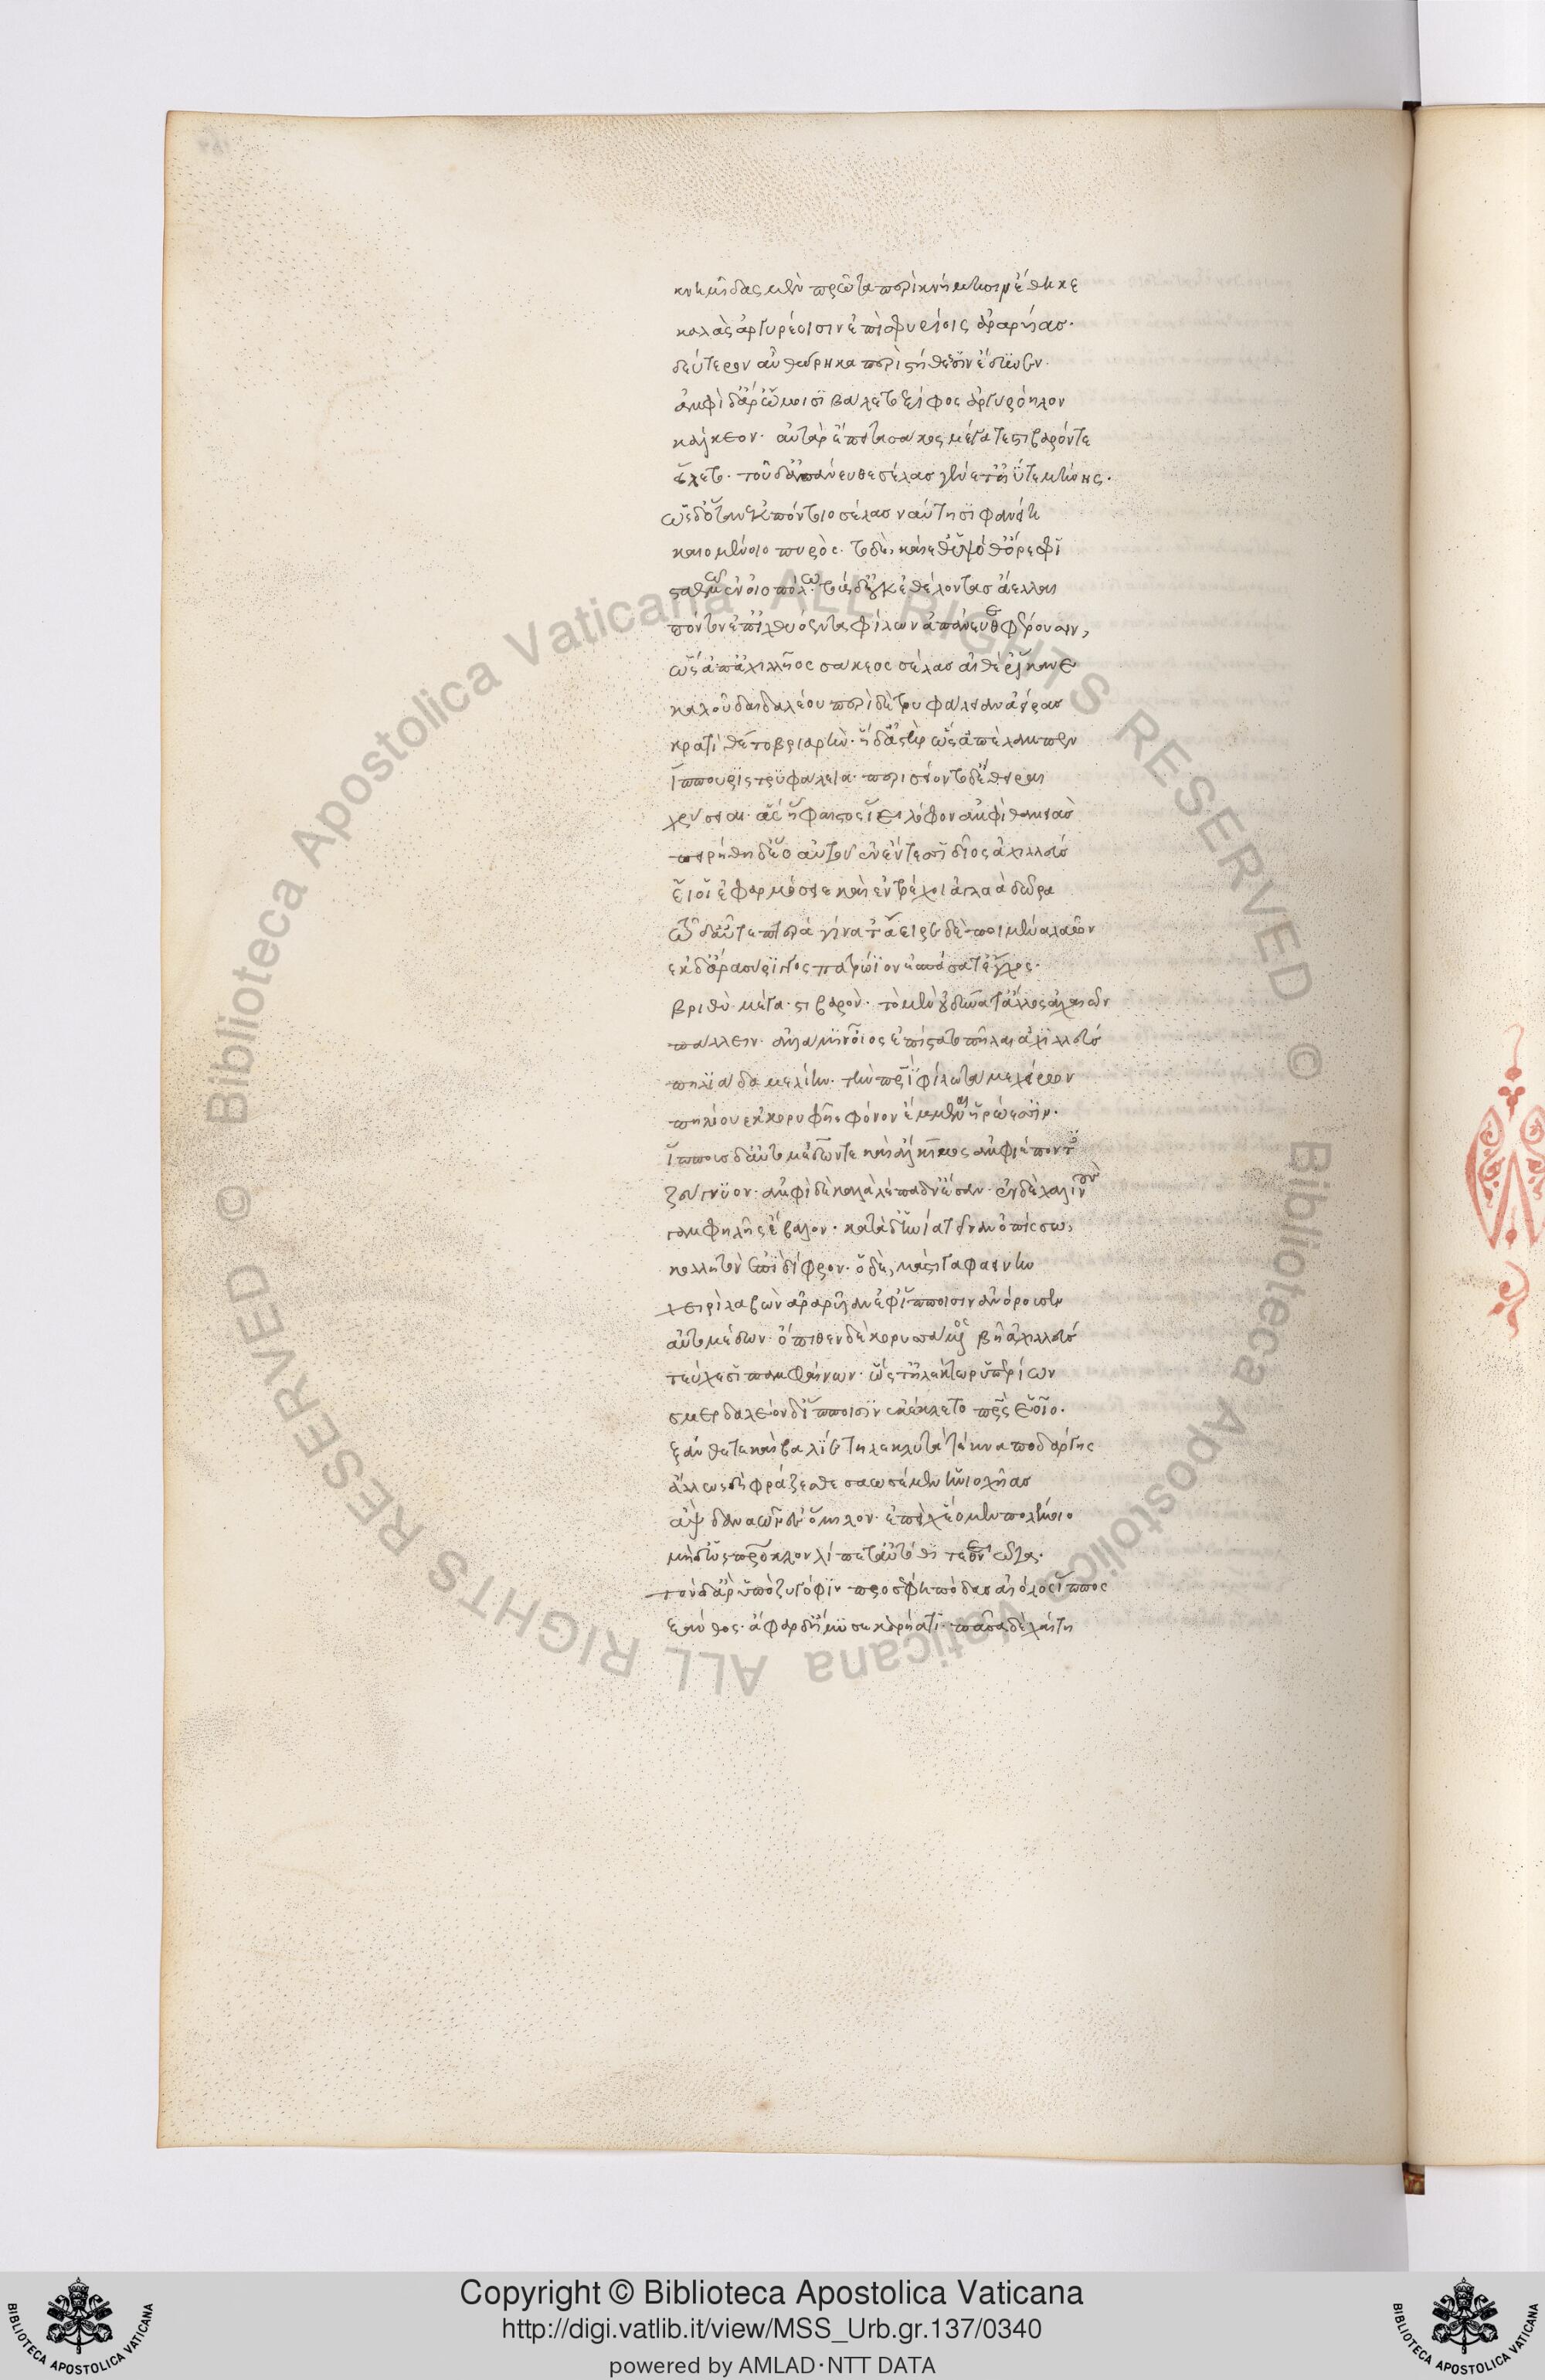 κνημῖδας μὲν πρῶτα περὶ κνήμῃσιν ἔθηκε
καλὰς ἀργυρέοισιν ἐπισφυρίοις ἀραρυίας·
δεύτερον αὖ θώρηκα περὶ στήθεσσιν ἔδυνεν·
ἀμφὶ δ' ἄρ' ὤμοισι βάλετο ξίφος ἀργυρόηλον
χάλκεον· αὐτὰρ ἔπειτα σάκος μέγα τε στιβαρόν τε
εἵλετο· τοῦ δ' ἀπάνευθε σέλας γένετ' ἠΰτε μήνης·
ὡς δ' ὅταν ἐκ πόντοιο σέλας ναύτῃσι φανείη
καιομένοιο πυρός· τὸ δὲ καίεθ' ὑψόθ' ὄρεσφι
σταθμῷ ἐν οἰοπόλῳ· τοὺς δ' οὐκ ἐθέλοντας ἄελλαι
πόντον ἐπ' ἰχθυόεντα φίλων ἀπάνευθε φέρουσιν,
ὣς ἀπ' ἀχιλλῆος σάκεος σέλας αἰθέρ' ἵκανε
καλοῦ δαιδαλέου περὶ δὲ τρυφάλειαν ἀείρας
κρατὶ θέτο βριαρήν· ἡ δ' ἀστὴρ ὣς ἀπέλαμπεν
ἵππουρις τρυφάλεια· περισσείοντο δ' ἔθειραι
χρύσεαι· ἃς ἥφαιστος ἵει λόφον ἀμφὶ θαμειάς
πειρήθη δ' ἕο αὐτοῦ ἐν ἔντεσι δῖος ἀχιλλεύς
εἴ οἱ ἐφαρμόσειε καὶ ἐντρέχοι ἀγλαὰ δῶρα
τῷ δ' αὖτε πτερὰ γίνετ' ἄειρε δὲ ποιμένα λαῶν
ἐκ δ' ἄρα σύριγγος πατρώϊον ἐσπάσατ' ἔγχος·
βριθὺ μέγα στιβαρόν· τὸ μὲν οὐ δύνατ' ἄλλος ἀχαιῶν
πάλλειν· ἀλλά μιν οἶος ἐπίστατο πῆλαι ἀχιλλεύς
πηλιάδα μελίην· τὴν πατρὶ φίλῳ τάμε χείρων
πηλίου ἐκ κορυφῆς φόνον ἔμμεναι ἡρώεσσιν·
ἵππους δ' αὐτομέδων τε καὶ ἄλκιμος ἀμφιέποντες
ζεύγνυον· ἀμφὶ δὲ καλὰ λέπαδν' ἕσαν· ἐν δὲ χαλινοὺς
γαμφηλῇς ἔβαλον· κατὰ δ' ἡνία τεῖναν ὀπίσσω,
κολλητὸν ἐπὶ δίφρον· ὁ δὲ, μάστιγα φαεινὴν
χειρὶ λαβὼν ἀραρυῖαν ἐφ' ἵπποισιν ἀνόρουσεν
αὐτομέδων· ὄπιθεν δὲ κορυσσάμενος βῆ ἀχιλλεύς
τεύχεσι παμφαίνων· ὥς τ' ἠλέκτωρ ὑπερίων
σμερδαλέον δ' ἵπποισιν ἐκέκλετο πατρὸς ἑοῖο·
ξάνθε τε καὶ βαλίε τηλεκλυτὰ τέκνα ποδάργης
ἄλλως δὴ φράζεσθε σαωσέμεν ἡνιοχῆας
ἂψ δαναῶν ἐς ὅμιλον· ἐπεί χ' ἕομεν πολέμοιο
μὴδ' ὡς πάτροκλον λίπετ' αὐτόθι τεθνειῶτα·
τὸν δ' ἄρ' ὑπὸ ζυγόφιν προσέφη πόδας αἰόλος ἵππος
ξάνθος· ἄφαρ δ' ἤμυσε καρήατι· πᾶσα δὲ χαίτη